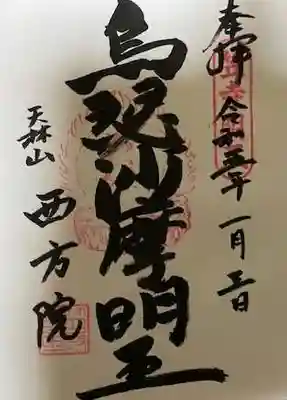 奉拝 令和五年 一月三日
烏芻沙摩明王
天林山 西方院